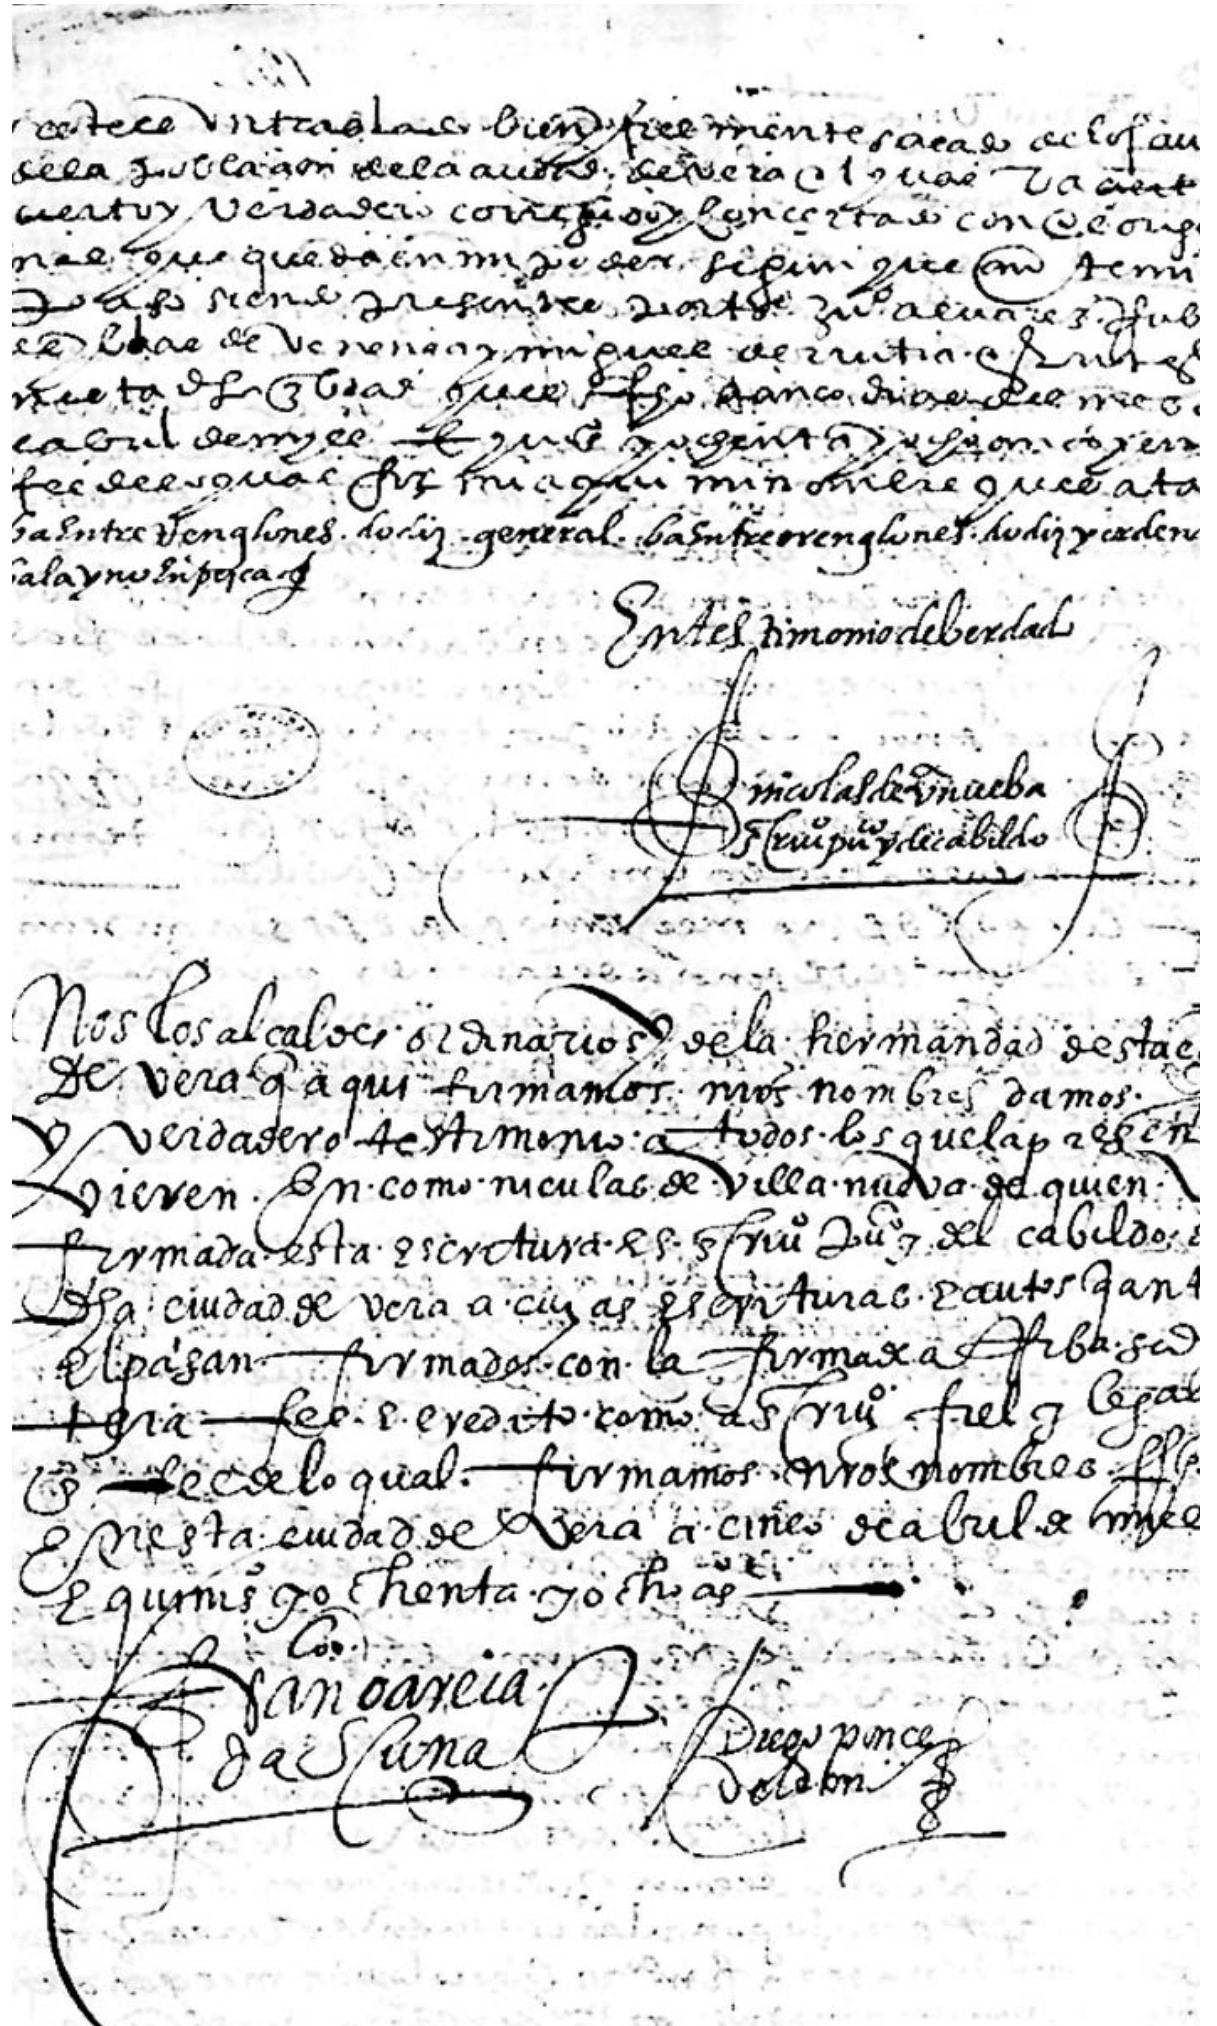 este es Un traslado bien y fielmente sacado de los au
de la poblaçion de la ciudad de vera el qual va çiert
cierto y Verdadero corregido y Concertado con el orig
nal que queda en mi poder segun que ante mi
paso siendo presentes por tºs juº albarez
de y miguel de
que es ffhº a cinco dias del mes d
e abril de myll e quiºs y ochenta y ocho años y en
fee de lo qual firme aqui mi nombre que es a ta
ba Entre Renglones. do diz. general. ba Entre renglones. do diz y orden
bala y no Enpezca
En testimonio de berdad
nicolas de Vªnueba
scriuº puᶜº y de cabildo
Nos los alcaldes ordinarios y de la hermandad desta c
De vera q aqui firmamos nros nombres damos.
Y verdadero testimonio a todos los que la presen
Vieren. En como niculas de villa nueva de quien. V
firmada esta escritura es scriuº puᶜº y del cabildo d
dha ciudad de vera a cuyas escrituras e autos q ant
el pasan firmados con la firma de a Rriba se a d
fee e credito como a scriuº fiel y legal
En fee de lo qual firmamos nros nombres ffh
En esta ciudad de Vera a cinco de abril de mill
e quinisº y ochenta y ocho aºs
Gan garcia
da Luna
Diego ponce
de leon